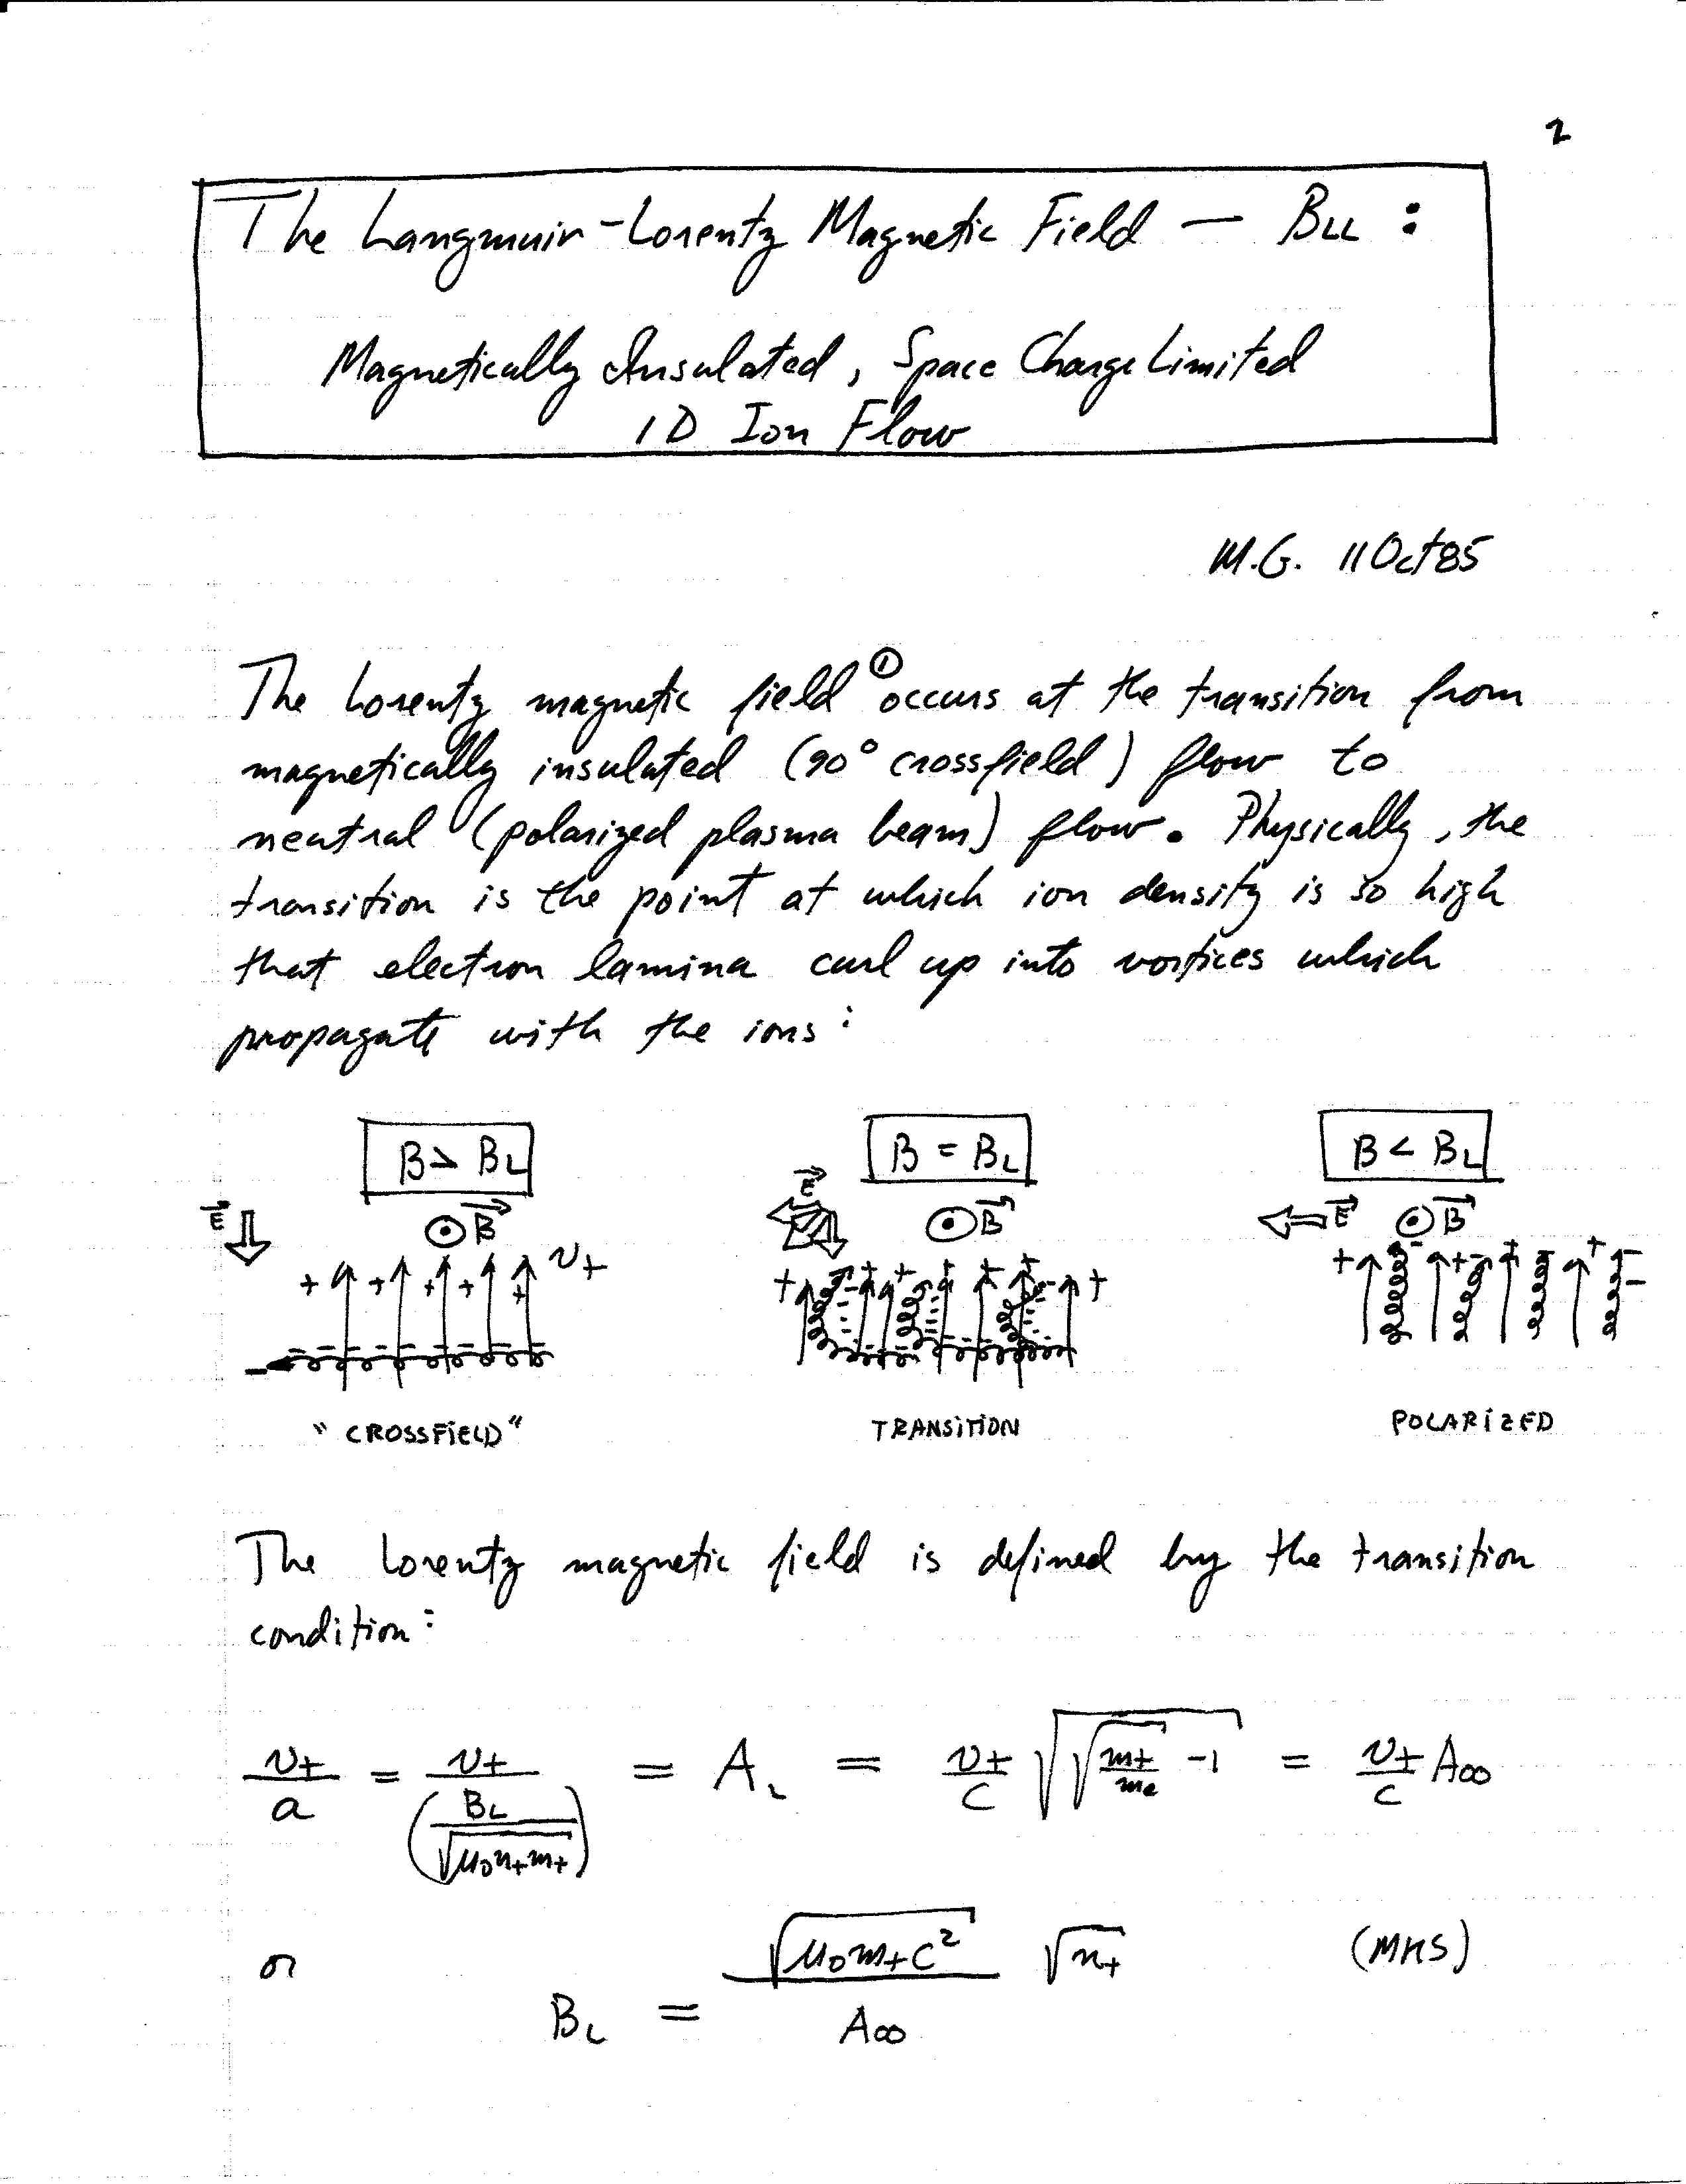 2
The Langmuir-Lorentz Magnetic Field — B_LL :
Magnetically Insulated, Space Charge Limited
1D Ion Flow
M.G. 11 Oct 85
The Lorentz magnetic field ① occurs at the transition from
magnetically insulated (90° crossfield) flow to
neutral (polarized plasma beam) flow. Physically, the
transition is the point at which ion density is so high
that electron lamina curl up into vortices which
propagate with the ions:
B > B_L B = B_L B < B_L
E⃗ ⊙ B⃗ E⃗ ⊙ B⃗ E⃗ ⊙ B⃗
+ + + + + v+
"CROSSFIELD" TRANSITION POLARIZED
The Lorentz magnetic field is defined by the transition
condition:
v+/a = v+/(B_L/√(μ₀n+m+)) = A_L = v+/c √(√(m+/me) -1) = v+/c A∞
or B_L = √(μ₀m+c²)/A∞ √n+ (MKS)